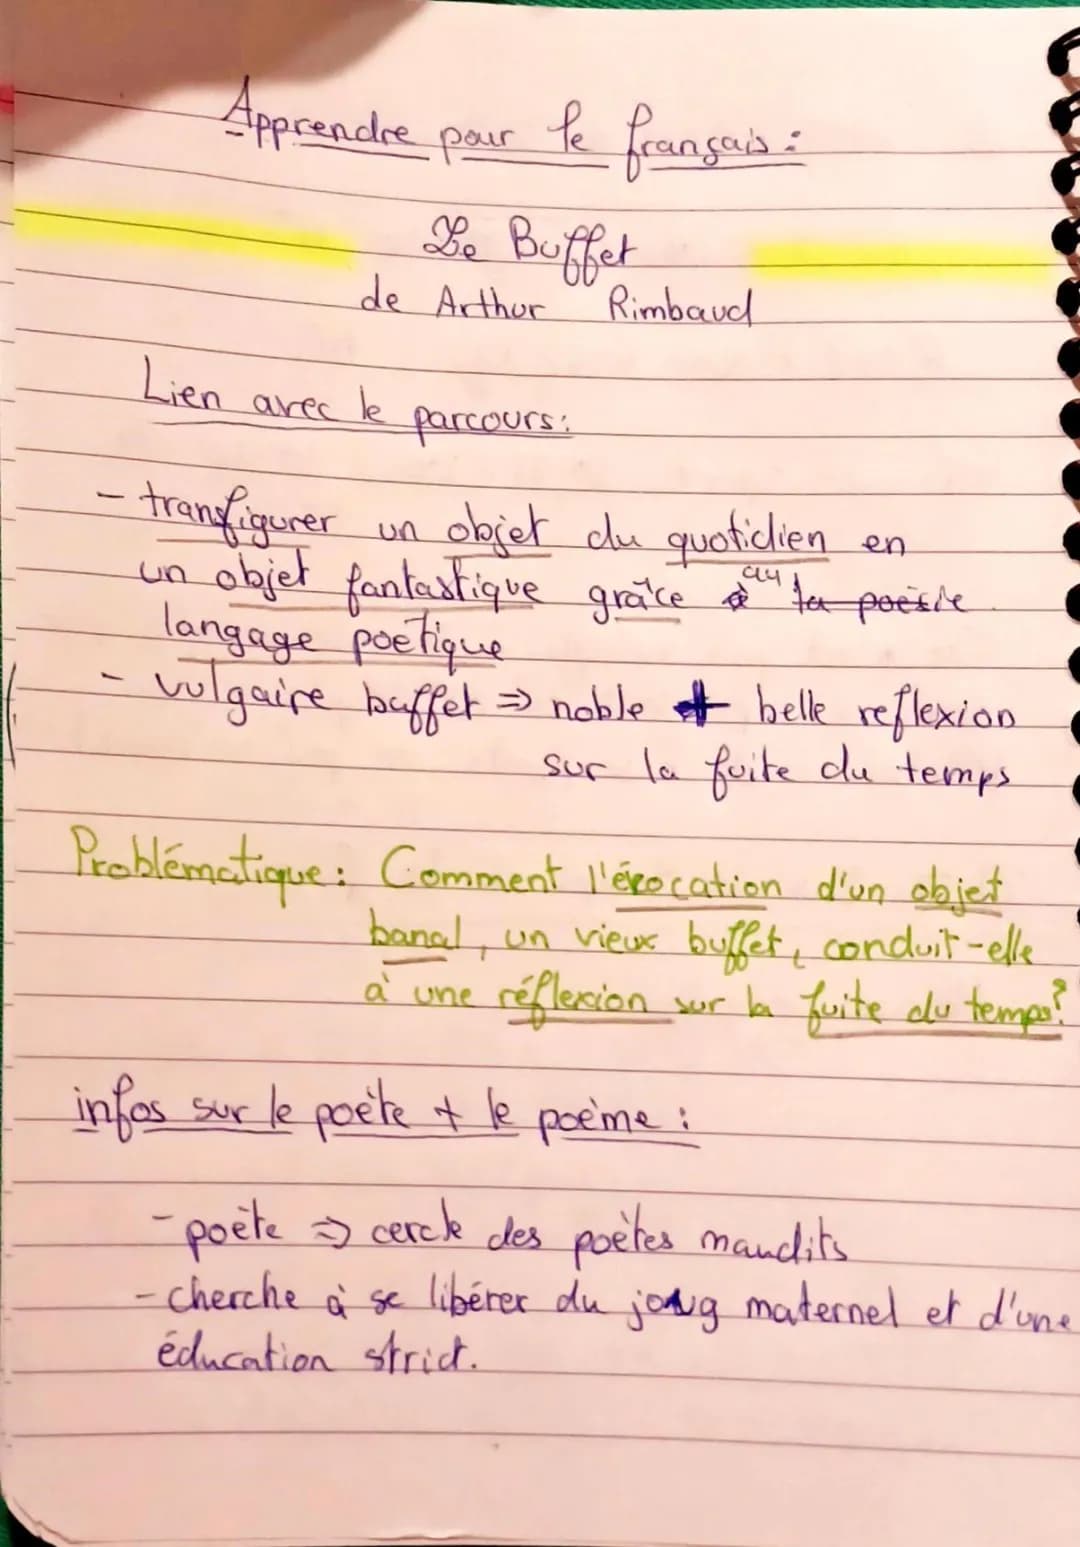 Apprendre pour le français :
Le Buffet
de Arthur Rimbaud
Lien avec le parcours :
- transfigurer un objet du quotidien en
un objet fantastique grâce à au la poésie
langage poetique
- vulgaire buffet => noble + belle reflexion
sur la fuite du temps
Problématique : Comment l'évocation d'un objet
banal, un vieux buffet, conduit-elle
à une réflexion sur la fuite du temps?
infos sur le poète + le poème :
- poète => cercle des poètes maudits
- cherche à se libérer du joug maternel et d'une
éducation strict.